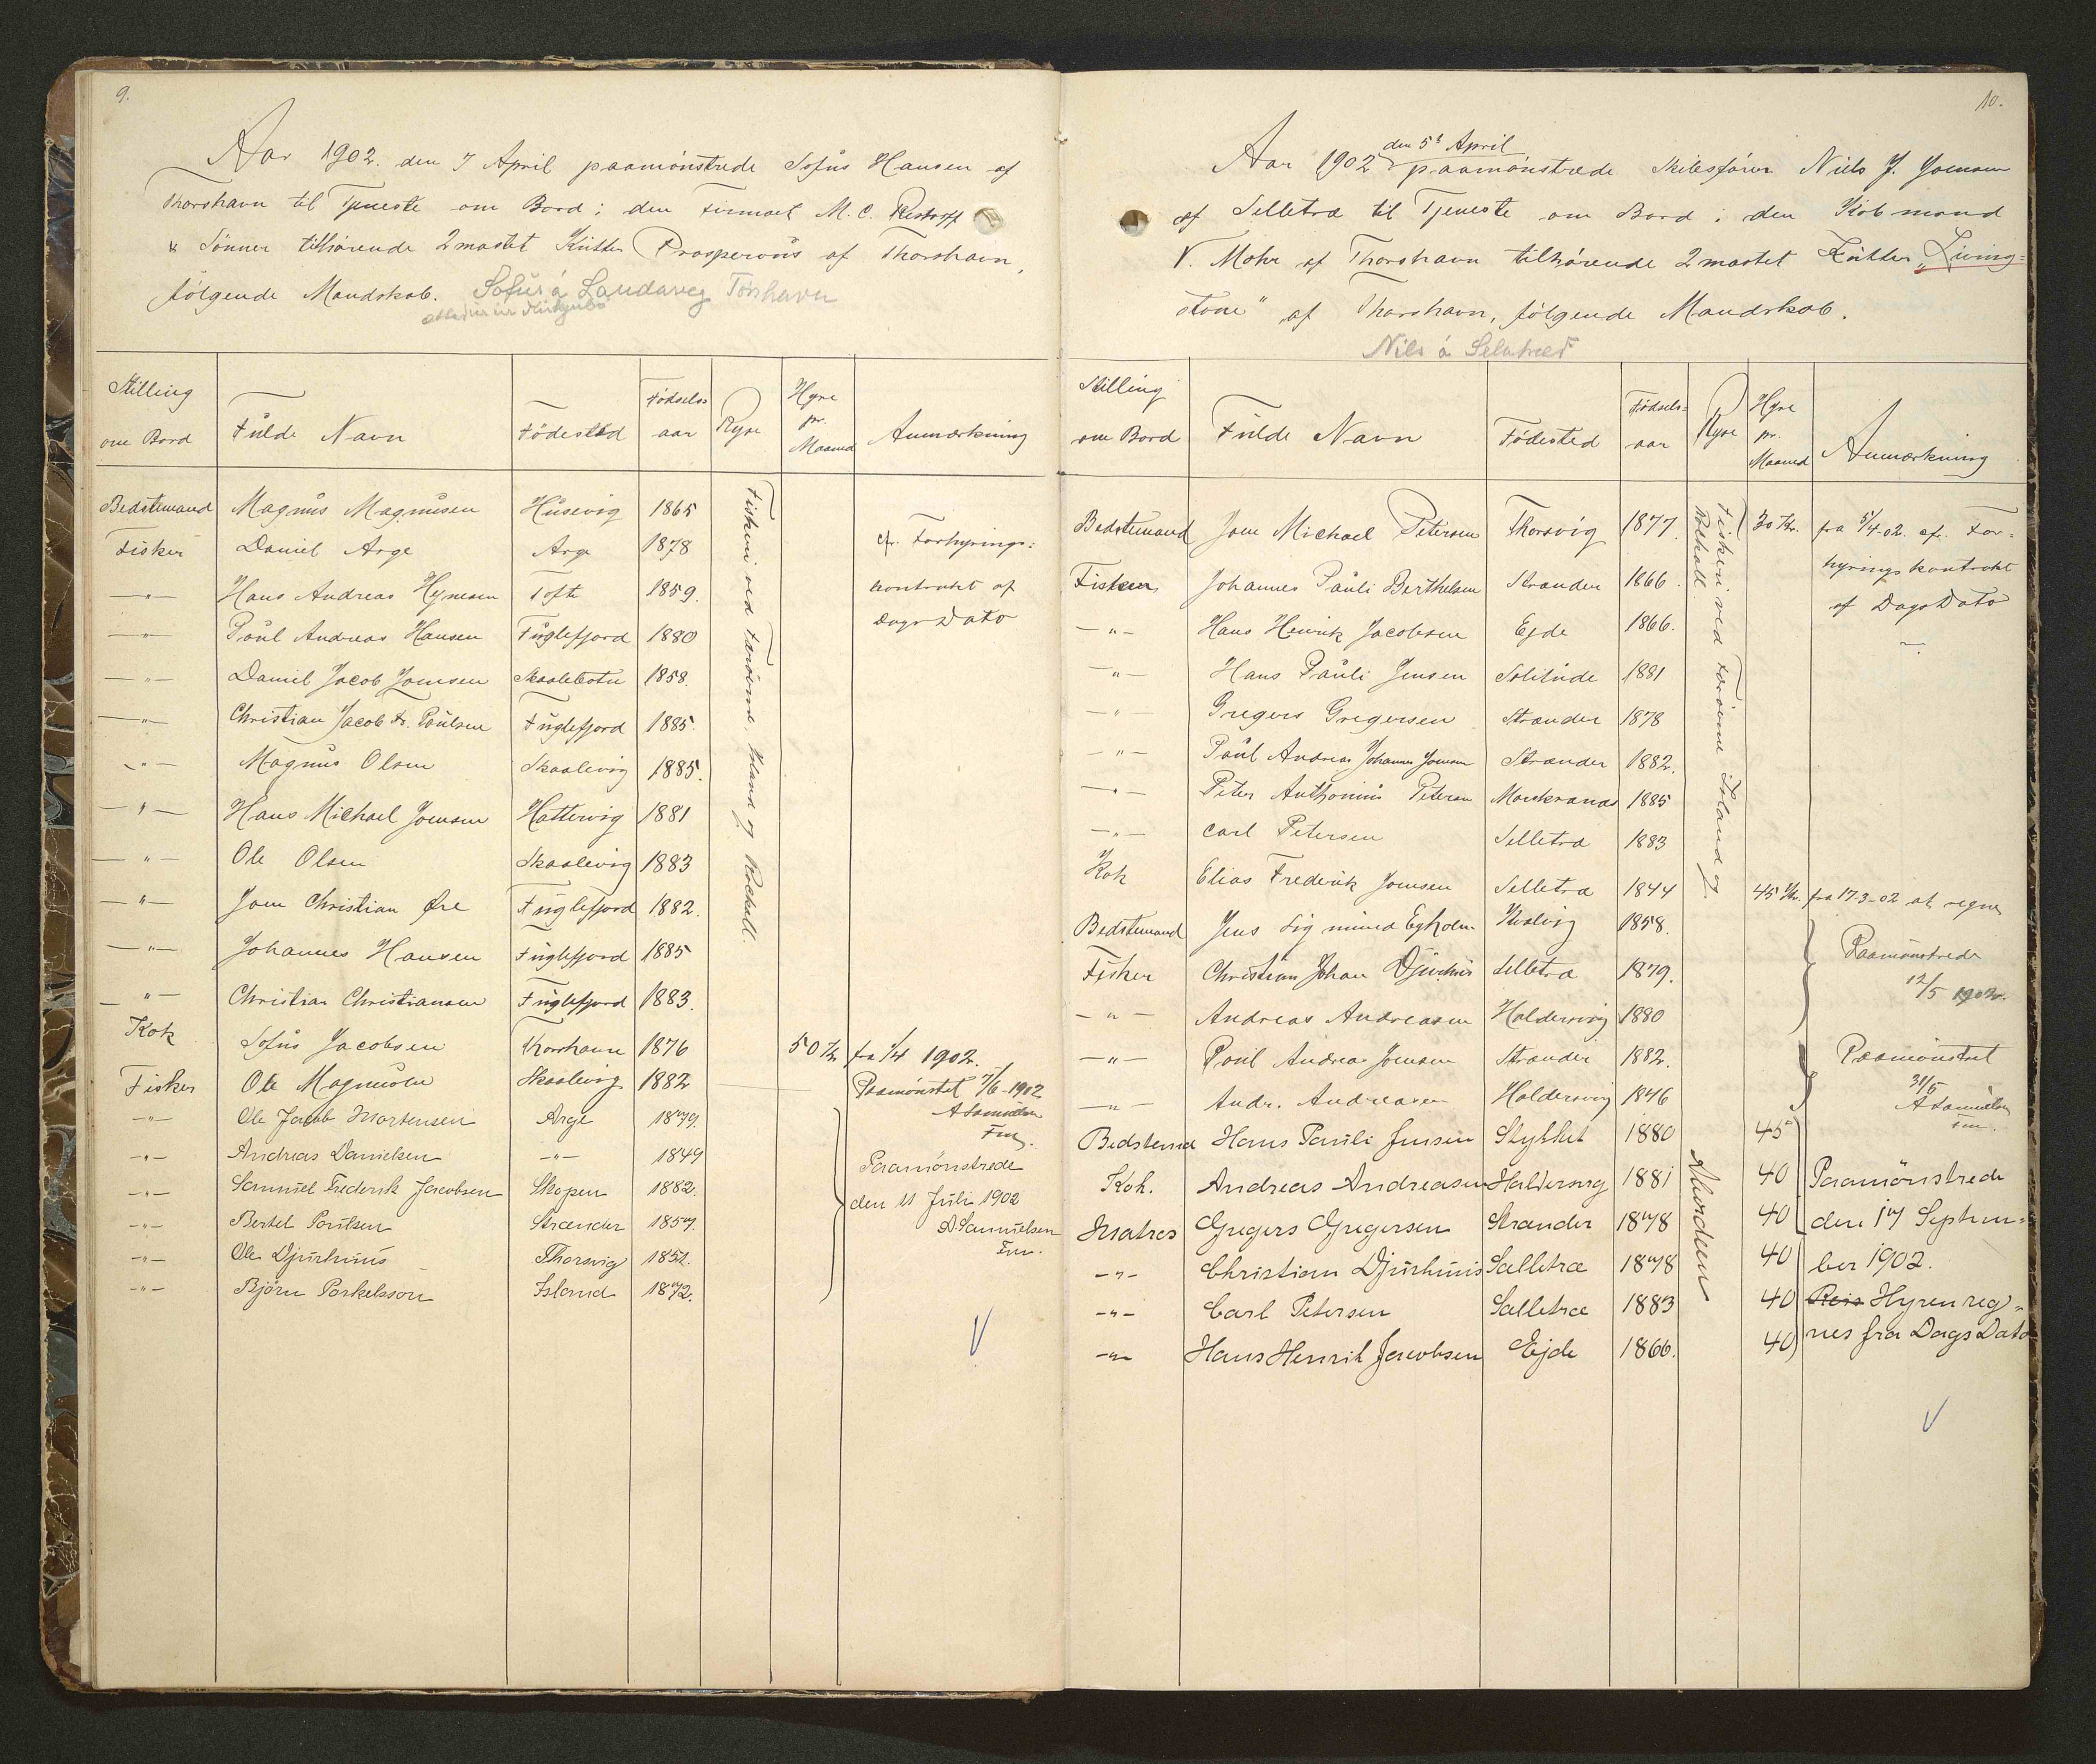 9.
Aar 1902. den 7 April paamönstrede Sofus Hansen af
Thorshavn til Tjeneste om Bord i den Firmaet M. C. Restorff
& Sönner tilhörende 2mastet Kutter Prosperous af Thorshavn,
fölgende Mandskab. Sofus á Landaveg Tórshavn
Stilling om Bord | Fulde Navn | Födested | Födsels- aar | Rejse | Hyre pr. Maaned | Anmærkning
Fiskeri ved Færöerne, Island og Rockall.
Bedstemand Magnus Magnusen Husevig 1865
Fisker Daniel Arge Arge 1878 cfr. Forhyrings-
-"- Hans Andreas Hynesen Tofte 1859. kontrakt af
-"- Poul Andreas Hansen Fuglefjord 1880 Dags Dato
-"- Daniel Jacob Joensen Skaalebotn 1858.
-"- Christian Jacob Fr. Poulsen Fuglefjord 1885.
-"- Magnus Olsen Skaalevig 1885.
-"- Hans Michael Joensen Hattervig 1881
-"- Ole Olsen Skaalevig 1883
-"- Joen Christian Öre Fuglefjord 1882.
-"- Johannes Hansen Fuglefjord 1885
-"- Christian Christiansen Fuglefjord 1883.
Kok Sofus Jacobsen Thorshavn 1876 50 Kr fra 1/4 1902.
Fisker Ole Magnusen Skaalevig 1882 Paamönstret 7/6-1902
ASamuelsen
Fm.
-"- Ole Jacob Mortensen Arge 1879.
-"- Andreas Danielsen -"- 1849 Paamönstrede
-"- Samuel Frederik Jacobsen Skopen 1882. den 11 Juli 1902
-"- Bertel Poulsen Strænder 1857. ASamuelsen
Fm.
-"- Ole Djurhuus Thorsvig 1851.
-"- Björn Þorkelsson Island 1872.
10.
den 5t April
Aar 1902 paamönstrede Skibsförer Niels J. Joensen
af Selletræ til Tjeneste om Bord i den Köbmand
V. Mohr af Thorshavn tilhörende 2mastet Kutter „Living=
stone" af Thorshavn, fölgende Mandskab.
Nils á Selatræð
Stilling om Bord | Fulde Navn | Födested | Födsels= aar | Rejse | Hyre pr. Maaned | Anmærkning
Fiskeri ved Færöerne Island og Rockall
Bedstemand Joen Michael Petersen Thorsvig 1877. 30 Kr. fra 5/4-02. cfr. For=
Fisker Johannes Pauli Berthelsen Strænder 1866. hyringskontrakt
-"- Hans Henrik Jacobsen Ejde 1866. af Dags Dato
-"- Hans Pauli Jensen Solitude 1881
-"- Gregers Gregersen Strænder 1878
-"- Poul Andreas Johannes Joensen Strænder 1882.
-"- Peter Anthonius Petersen Morskranes 1885
-"- Carl Petersen Selletræ 1883
Kok Elias Frederik Joensen Selletræ 1844 45 Kr. fra 17-3-02 at regne
Bedstemand Jens Sigmund Egholm Kvalvig 1858. Paamönstrede
Fisker Christian Johan Djurhus Selletræ 1879. 12/5 1902.
-"- Andreas Andreasen Haldersvig 1880
-"- Poul Andreas Joensen Strænder 1882. Paamönstret
-"- Andr. Andreasen Haldersvig 1846 31/5
ASamuelsen
Fm.
Nordsöen
Bedstemd Hans Pauli Jensen Stykket 1880 45
Kok. Andreas Andreasen Haldersvig 1881 40 Paamönstrede
Matros Gregers Gregersen Strænder 1878 40 den 17 Septem=
-"- Christian Djurhuus Selletræ 1878 40 ber 1902.
-"- Carl Petersen Selletræ 1883 40 Reis Hyren reg=
-"- Hans Henrik Jacobsen Ejde 1866. 40 nes fra Dags Dato